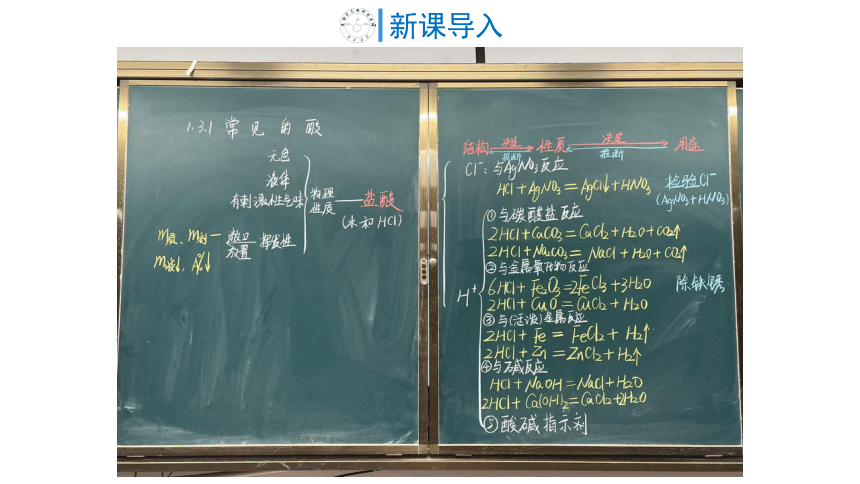 新课导入
1.3.1 常见的酸
无色
液体
有刺激性气味
物理性质
盐酸
(水和HCl)
敞口放置
挥发性
m质、m剂一
m液↓,A%↓
结构 决定 性质 决定 用途
推断 推断
Cl⁻:与AgNO3反应
HCl+AgNO3=AgCl↓+HNO3
检验Cl⁻
(AgNO3+HNO3)
H⁺
①与碳酸盐反应
2HCl+CaCO3=CaCl2+H2O+CO2↑
2HCl+Na2CO3= NaCl+H2O+CO2↑
②与金属氧化物反应
6HCl+Fe2O3=2FeCl3+3H2O
除铁锈
2HCl+CuO=CuCl2+H2O
③与(活泼)金属反应
2HCl+Fe=FeCl2+H2↑
2HCl+Zn=ZnCl2+H2↑
④与碱反应
HCl+NaOH=NaCl+H2O
2HCl+Ca(OH)2=CaCl2+2H2O
⑤酸碱指示剂